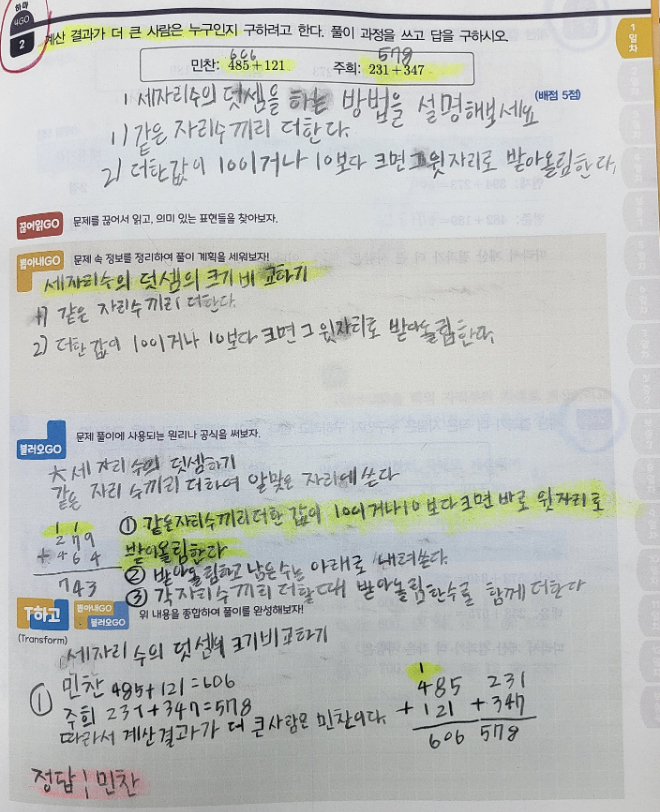 하마
4GO
2
계산 결과가 더 큰 사람은 누구인지 구하려고 한다. 풀이 과정을 쓰고 답을 구하시오.
1일차
606 578
민찬: 485+121 주희: 231+347
(배점 5점)
1 세자리수의 덧셈을 하는 방법을 설명해보세요
1) 같은 자리수끼리 더한다.
2) 더한값이 10이거나 10보다 크면 그 윗자리로 받아올림한다.
끊어읽GO 문제를 끊어서 읽고, 의미 있는 표현들을 찾아보자.
뽑아내GO 문제 속 정보를 정리하여 풀이 계획을 세워보자!
세자리수의 덧셈의 크기 비교하기
1) 같은 자리수끼리 더한다.
2) 더한 값이 10이거나 10보다 크면 그 윗자리로 받아올림한다.
불러오GO 문제 풀이에 사용되는 원리나 공식을 써보자.
세 자리 수의 덧셈하기
같은 자리 수끼리 더하여 알맞은 자리에 쓴다
1 1
279
+ 464
743
① 같은자리수끼리더한 값이 10이거나10보다크면 바로 윗자리로
받아올림한다
② 받아올림하고 남은수는 아래로 내려쓴다.
③ 각자리수끼리 더할때 받아올림한수로 함께 더한다
T하고 뽑아내GO 불러오GO 위 내용을 종합하여 풀이를 완성해보자!
(Transform)
세자리 수의 덧셈의 크기비교하기
① 민찬 485+121=606
주희 231+347=578
따라서 계산결과가 더 큰사람은 민찬이다.
1
485 231
+121 +347
606 578
정답 | 민찬